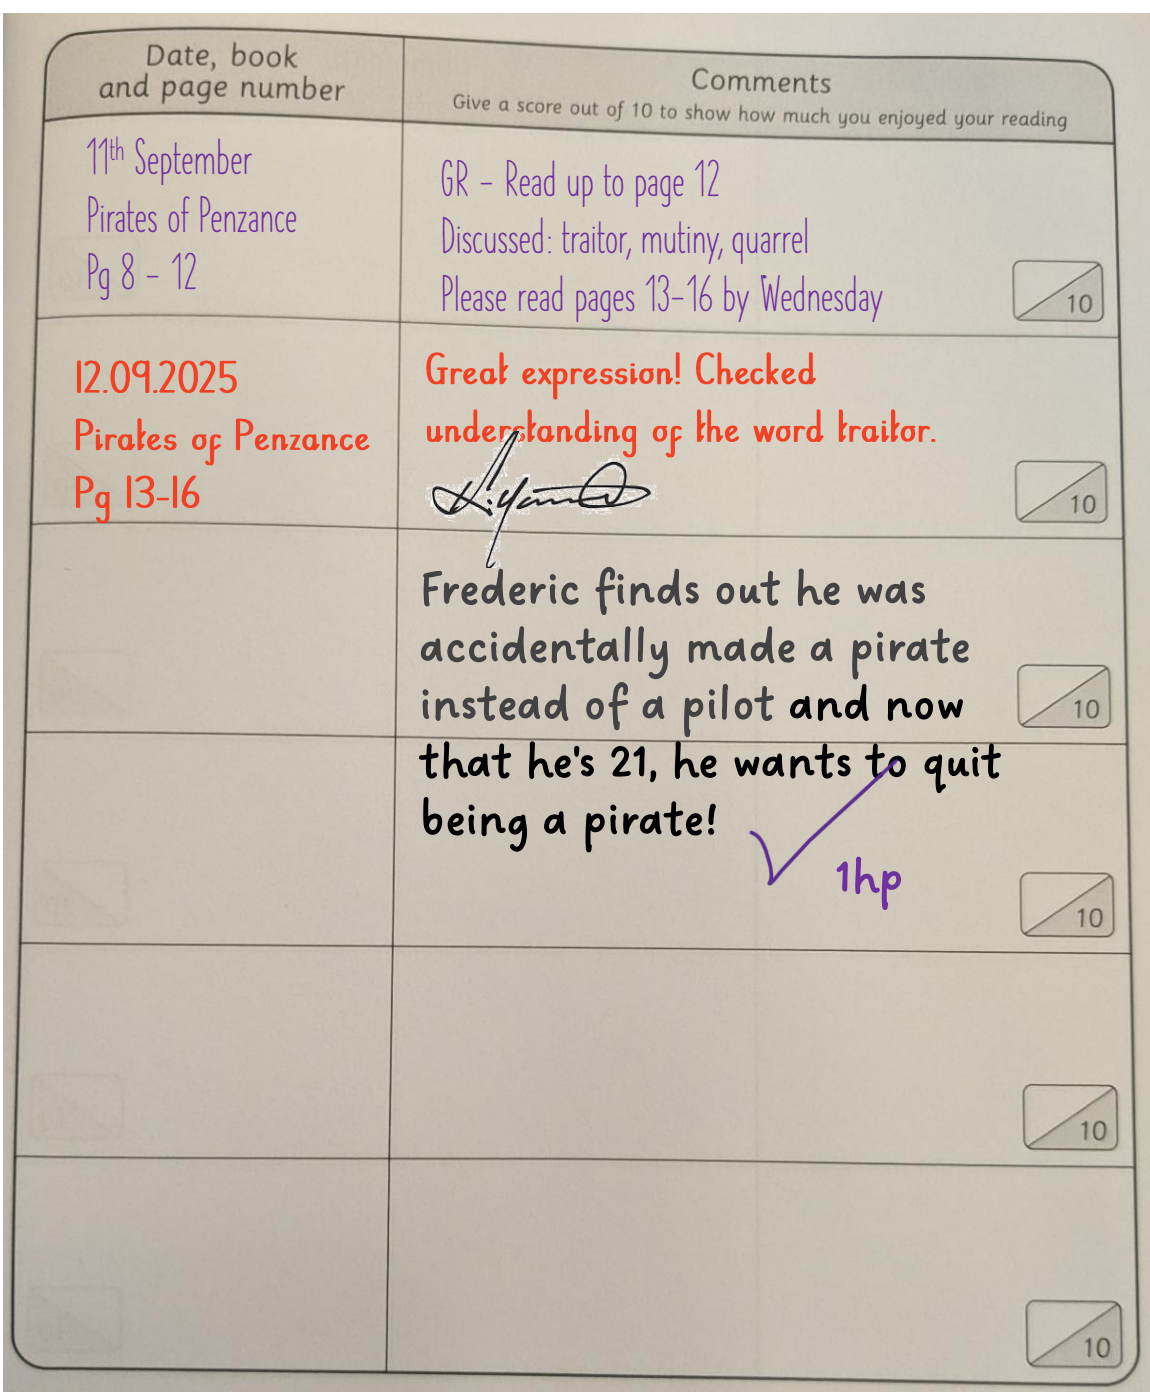 Date, book
and page number
Comments
Give a score out of 10 to show how much you enjoyed your reading
11th September
Pirates of Penzance
Pg 8 – 12
GR – Read up to page 12
Discussed: traitor, mutiny, quarrel
Please read pages 13-16 by Wednesday
10
12.09.2025
Pirates of Penzance
Pg 13-16
Great expression! Checked
understanding of the word traitor.
10
Frederic finds out he was
accidentally made a pirate
instead of a pilot and now
that he's 21, he wants to quit
being a pirate!
10
1hp
10
10
10